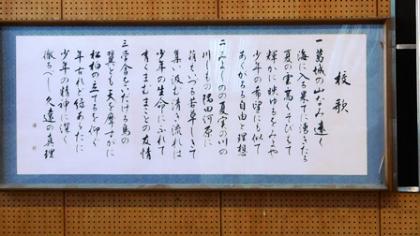 校歌
一 葛城の山なみ遠く
海に入る果てに湧きたち
夏の雲高くそびえて
輝かに映ゆるをみよや
少年の希望にも似て
あくがるる自由と理想
の川の
川しもの隅田河原に
萌えいづる若草しきて
集ひ汲む清き流れは
少年の生命にふれて
まことの友情
三 学舎をいだける鳥の
翼とも天を摩すかに
松柏の立てるを仰ぐ
年古れど緑あらたに
少年の精神に深く
徹るべし久遠の真理